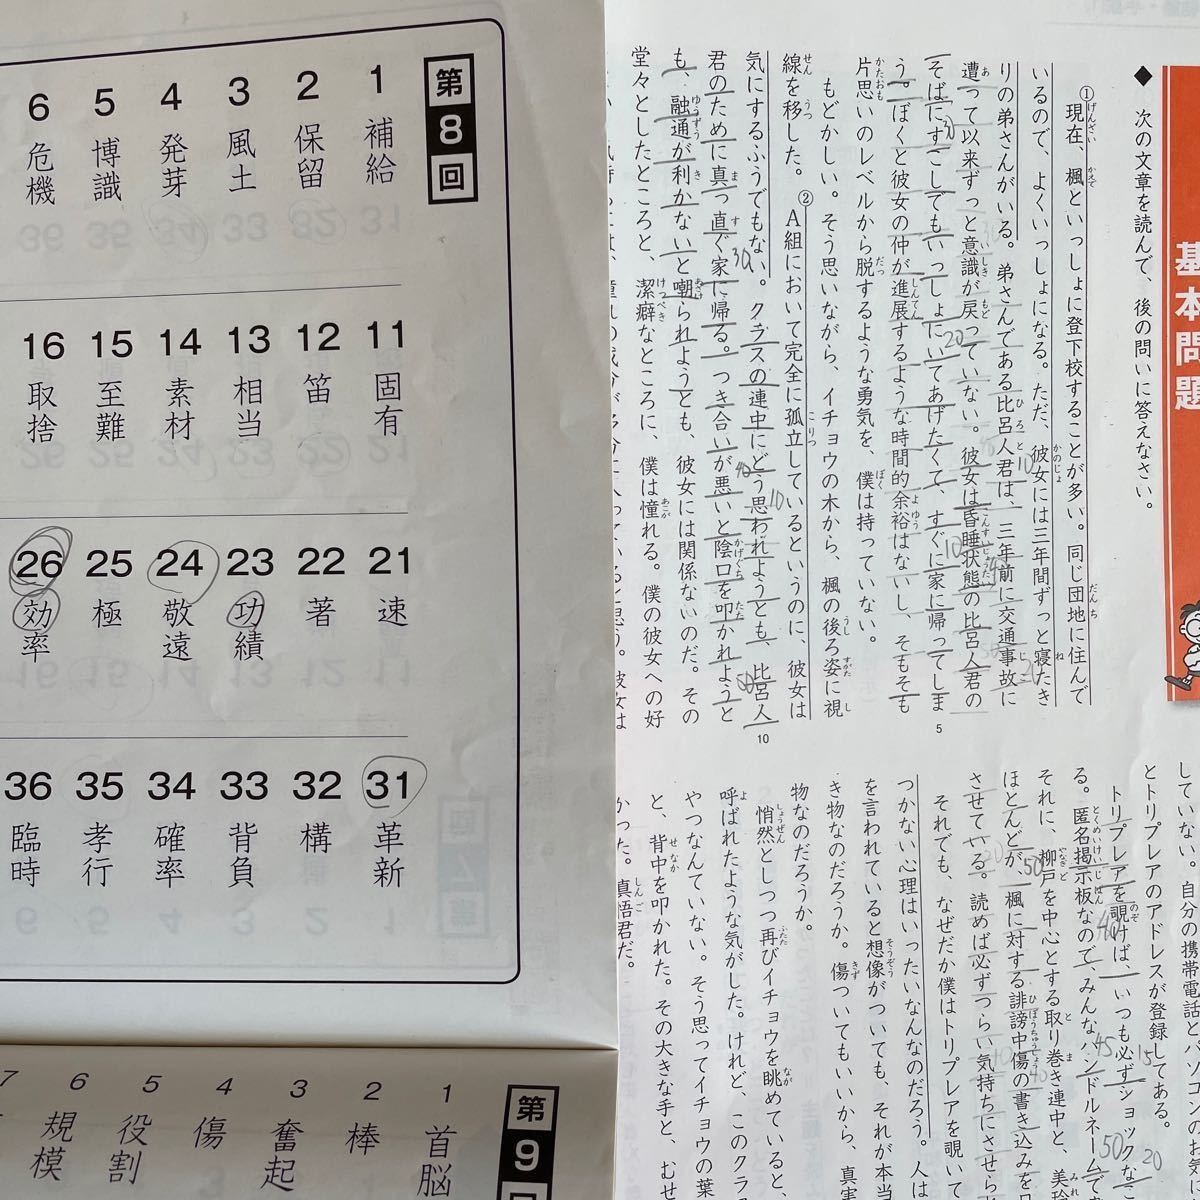 第8回
1 補給
2 保留
3 風土
4 発芽
5 博識
6 危機
11 固有
12 笛
13 相当
14 素材
15 至難
16 取捨
21 速
22 著
23 功績
24 敬遠
25 極
26 効率
31 革新
32 構
33 背負
34 確率
35 孝行
36 臨時
第9
1 首脳
2 棒
3 奮起
4 傷
5 役割
6 規模
7
基本問題
◆ 次の文章を読んで、後の問いに答えなさい。
①現在、楓といっしょに登下校することが多い。同じ団地に住んで
いるので、よくいっしょになる。ただ、彼女には三年間ずっと寝たき
りの弟さんがいる。弟さんである比呂人君は、三年前に交通事故に
遭って以来ずっと意識が戻っていない。彼女は昏睡状態の比呂人君の
そばにすこしでもいっしょにいてあげたくて、すぐに家に帰ってしま
う。ぼくと彼女の仲が進展するような時間的余裕はないし、そもそも
片思いのレベルから脱するような勇気を、僕は持っていない。
もどかしい。そう思いながら、イチョウの木から、楓の後ろ姿に視
線を移した。②A組において完全に孤立しているというのに、彼女は
気にするふうでもない。クラスの連中にどう思われようとも、比呂人
君のために真っ直ぐ家に帰る。つき合いが悪いと陰口を叩かれようと
も、融通が利かないと嘲られようとも、彼女には関係ないのだ。その
堂々としたところと、潔癖なところに、僕は憧れる。僕の彼女への好
5
10
していない。自分の携帯電話とパソコンのお気
とトリプレアのアドレスが登録してある。
トリプレアを覗けば、いつも必ずショックな
る。匿名掲示板なので、みんなハンドルネームで
それに、柳戸を中心とする取り巻き連中と、美
ほとんどが、楓に対する誹謗中傷の書き込みを
させている。読めば必ずつらい気持ちにさせら
それでも、なぜだか僕はトリプレアを覗いて
つかない心理はいったいなんなのだろう。人は
を言われていると想像がついても、それが本当
き物なのだろうか。傷ついてもいいから、真実
物なのだろうか。
悄然としつつ再びイチョウを眺めていると、
呼ばれたような気がした。けれど、このクラ
やつなんていない。そう思ってイチョウの葉
と、背中を叩かれた。その大きな手と、むせ
かった。真悟君だ。